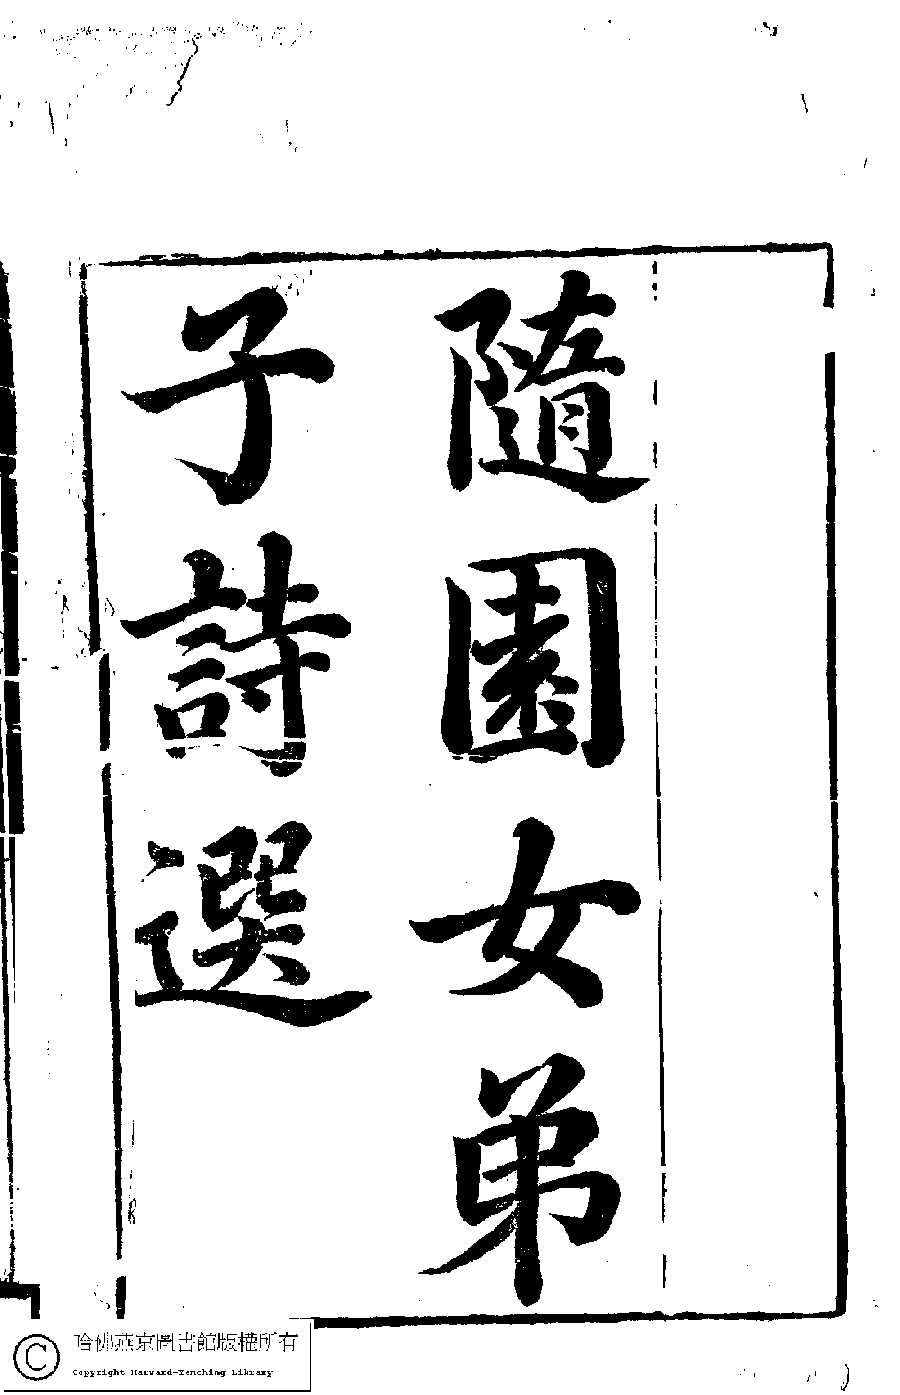 隨園女弟
子詩選
哈佛燕京圖書館版權所有
Copyright Harvard-Yenching Library